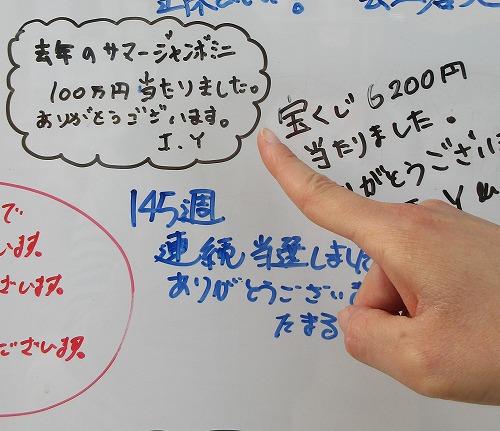 去年のサマージャンボミニ
100万円当たりました。
ありがとうございます。
I.Y
宝くじ6200円
当たりました。
がとうござい
Y
145週
連続当選しました
ありがとうございま
たまる
で
います。
ざいます。
ございます。